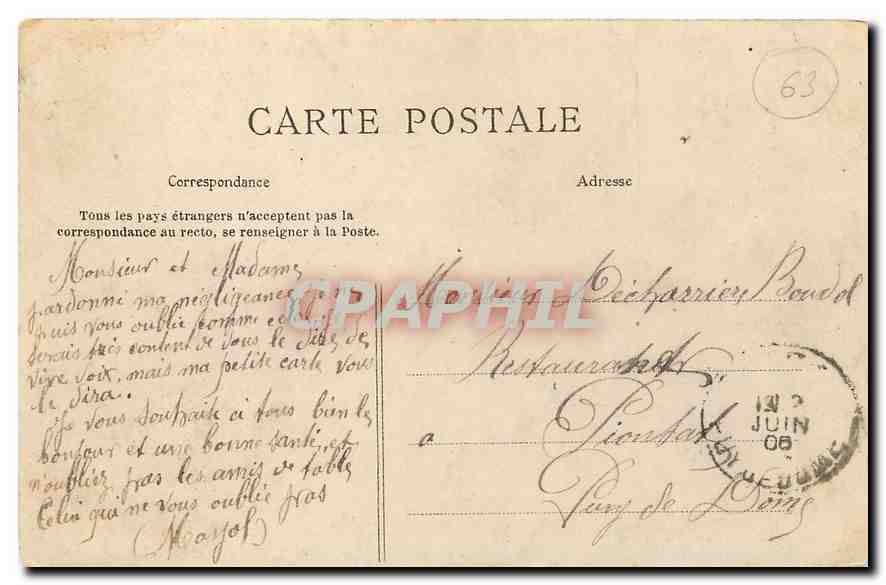 63
CARTE POSTALE
Correspondance
Adresse
Tous les pays étrangers n'acceptent pas la
correspondance au recto, se renseigner à la Poste.
Monsieur et Madame
pardonné ma négligeance je ne
puis vous oublié comme cela
serais très content de vous le dire de
vive voix, mais ma petite carte vous
le dira.
Je vous souhaite a tous bien le
bonjour et une bonne santé, et
n'oubliez pas les amis de table
Celui qui ne vous oublie pas
CPAPHIL
Monsieur Décharrière
Restaurant
a Piontat
Puy de Dome
JUIN
06
PUY DE DOME